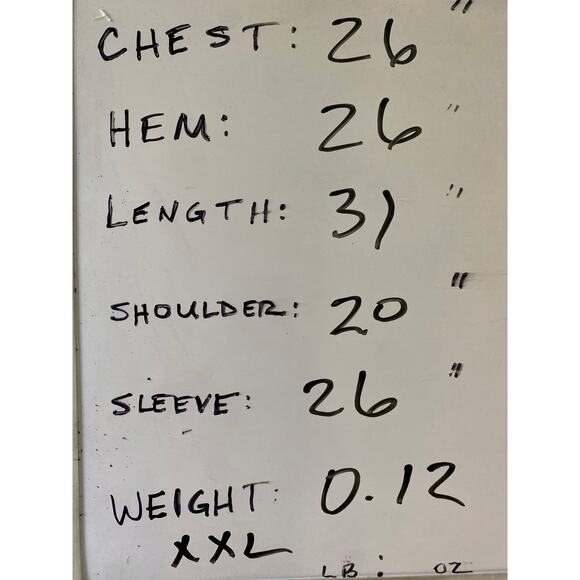 CHEST: 26"
HEM: 26"
LENGTH: 31"
SHOULDER: 20"
SLEEVE: 26"
WEIGHT: 0.12
XXL
LB: OZ